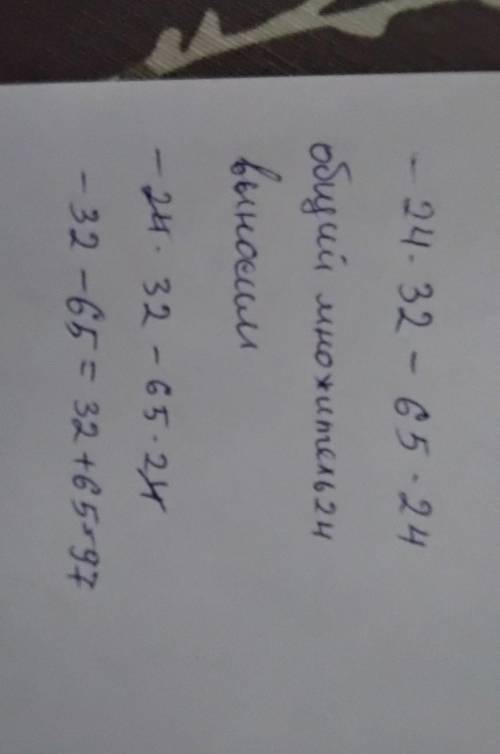 - 24 · 32 - 65 · 24
общий множитель 24
выносим
- 24 · 32 - 65 · 24
- 32 - 65 = 32 + 65 = 97